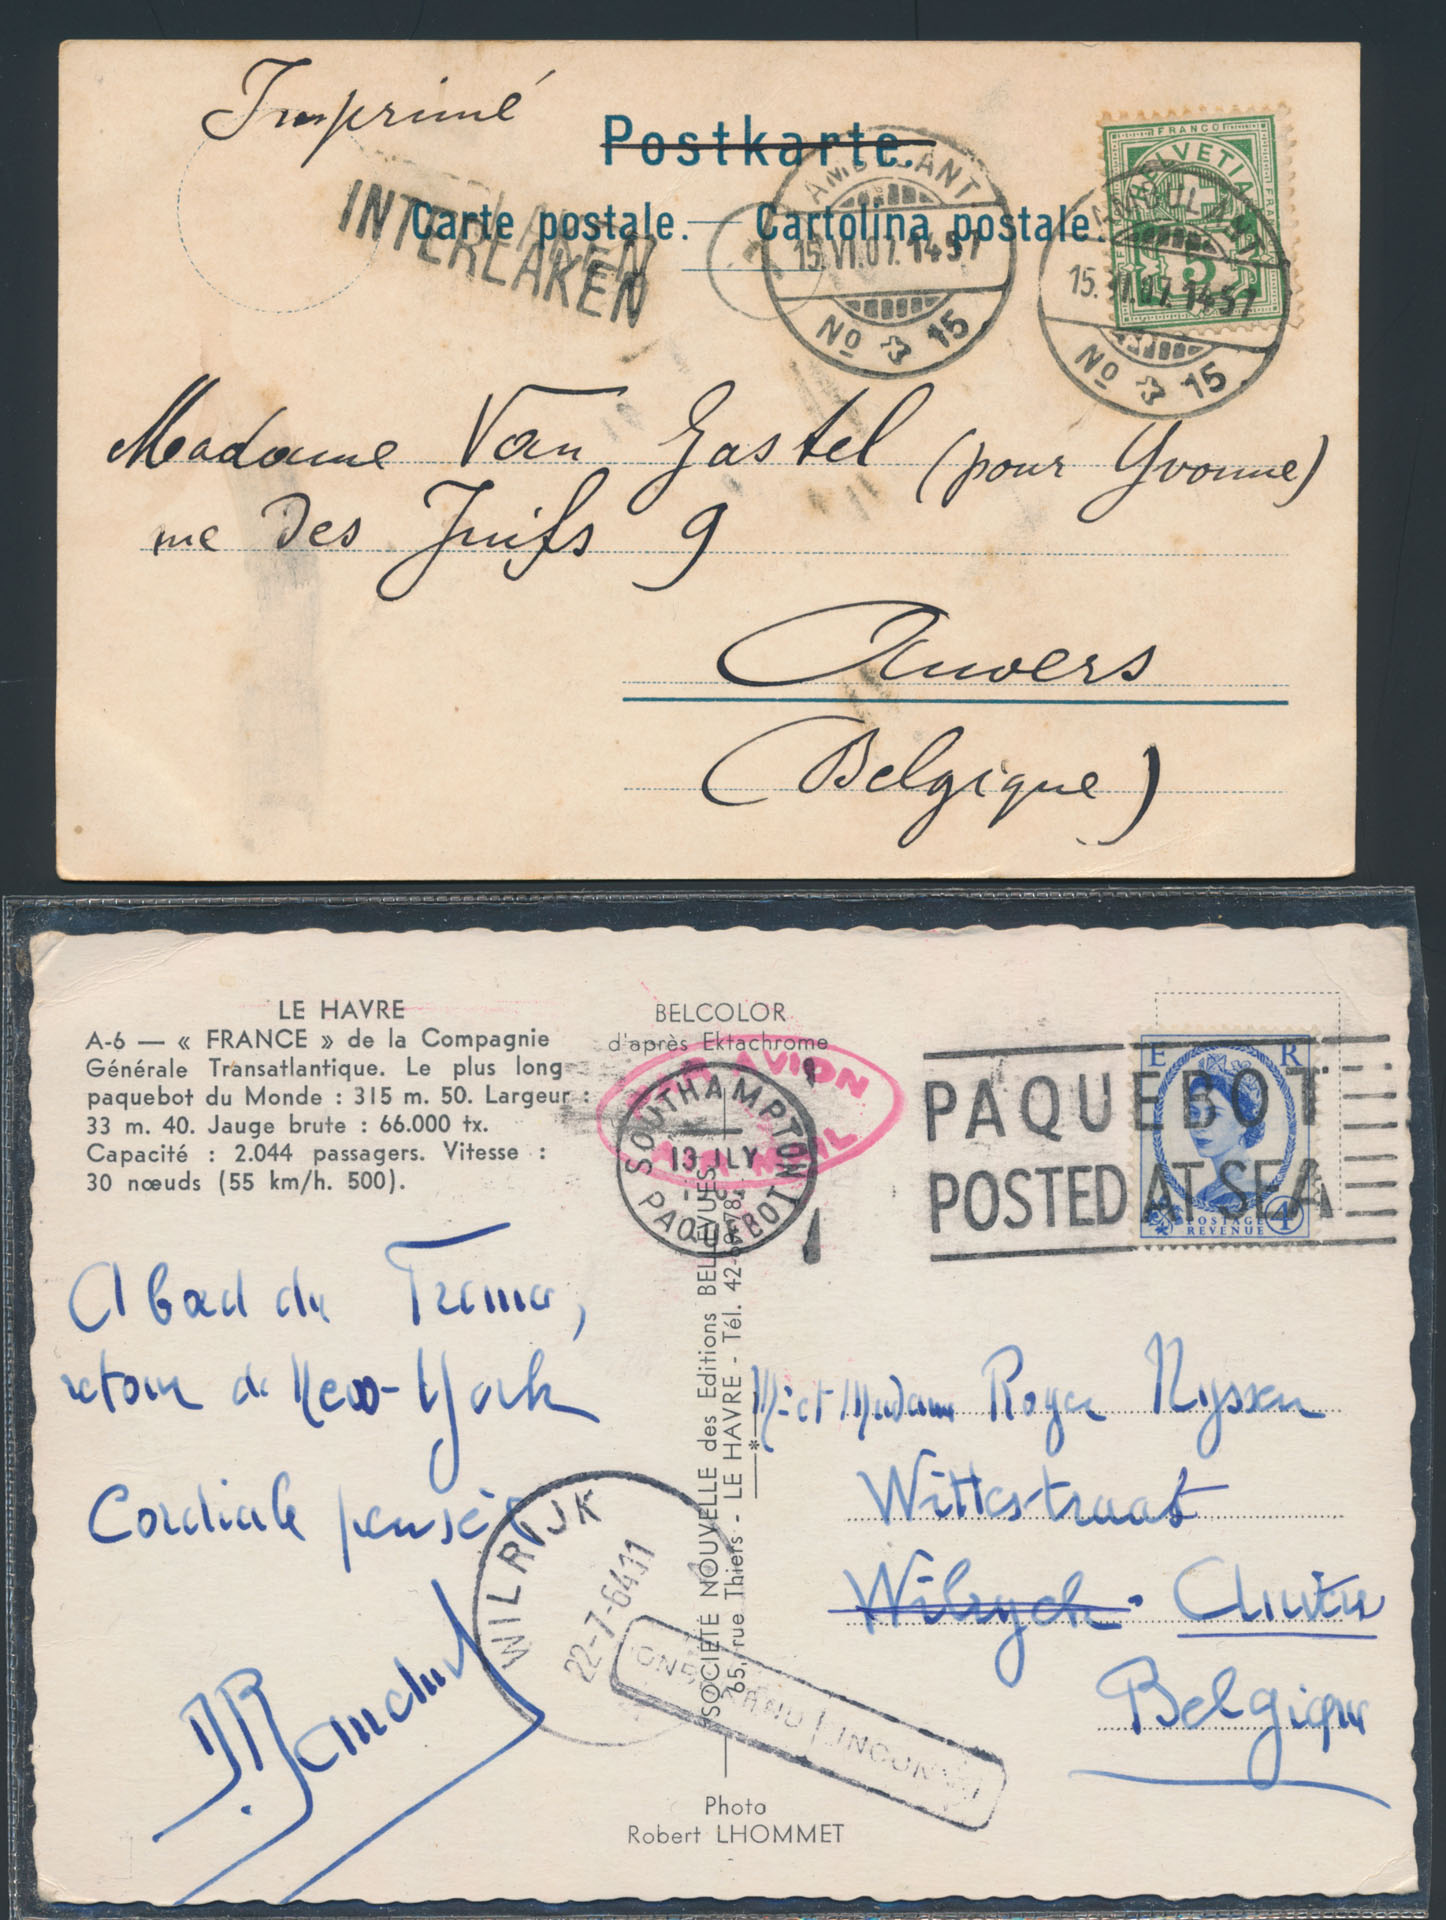 Imprimé
Postkarte.
Carte postale. — Cartolina postale.
INTERLAKEN
INTERLAKEN
AMBULANT
15.VI.07. 1457
No 15
AMBULANT
15.VI.07. 1457
No 15
FRANCO
HELVETIA
FRANCO
5
Madame Van Gastel (pour Yvonne)
rue Des Juifs 9
Anvers
(Belgique)
LE HAVRE
A-6 — « FRANCE » de la Compagnie
Générale Transatlantique. Le plus long
paquebot du Monde : 315 m. 50. Largeur :
33 m. 40. Jauge brute : 66.000 tx.
Capacité : 2.044 passagers. Vitesse :
30 nœuds (55 km/h. 500).
BELCOLOR
d'après Ektachrome
PAR AVION
AIR MAIL
SOUTHAMPTON
13 JLY
PAQUEBOT
PAQUEBOT
POSTED AT SEA
E R
POSTAGE
REVENUE
4
A bord du France,
retour de New-York
Cordiale pensée
SOCIÉTÉ NOUVELLE des Editions BELLEVUES
65, rue Thiers - LE HAVRE - Tél. 42-69-78
WILRIJK
22-7-6411
ONBEKEND INCONNU
Mr et Madame Roger Nyssen
Wittestraat
Wilryck - Anvers
Belgique
Photo
Robert LHOMMET